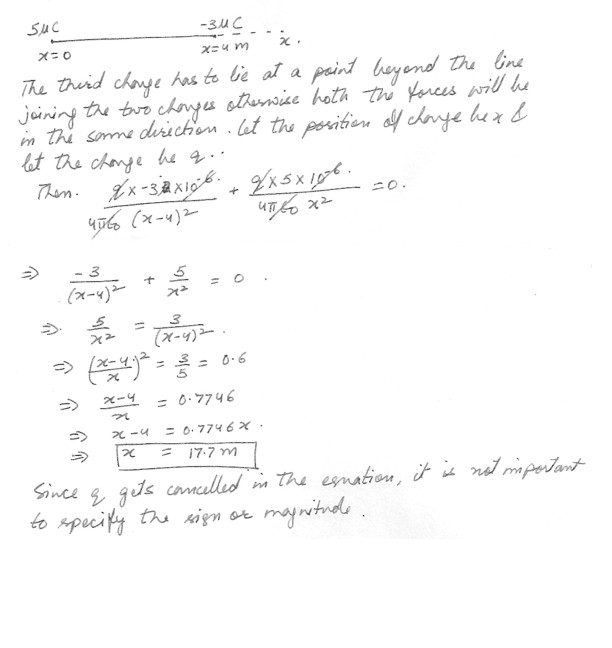 5μC -3μC
x=0 x=4m x.
The third charge has to lie at a point beyond the line
joining the two charges otherwise both the forces will be
in the same direction. Let the position of charge be x &
let the charge be q..
Then. q x -3 x10^-6. / 4πε0 (x-4)^2 + q x 5 x 10^-6. / 4πε0 x^2 =0.
⇒ -3/(x-4)^2 + 5/x^2 = 0.
⇒. 5/x^2 = 3/(x-4)^2.
⇒ ((x-4)/x)^2 = 3/5 = 0.6
⇒ (x-4)/x = 0.7746
⇒ x-4 = 0.7746x.
⇒ x = 17.7m
Since q gets cancelled in the equation, it is not important
to specify the sign or magnitude.